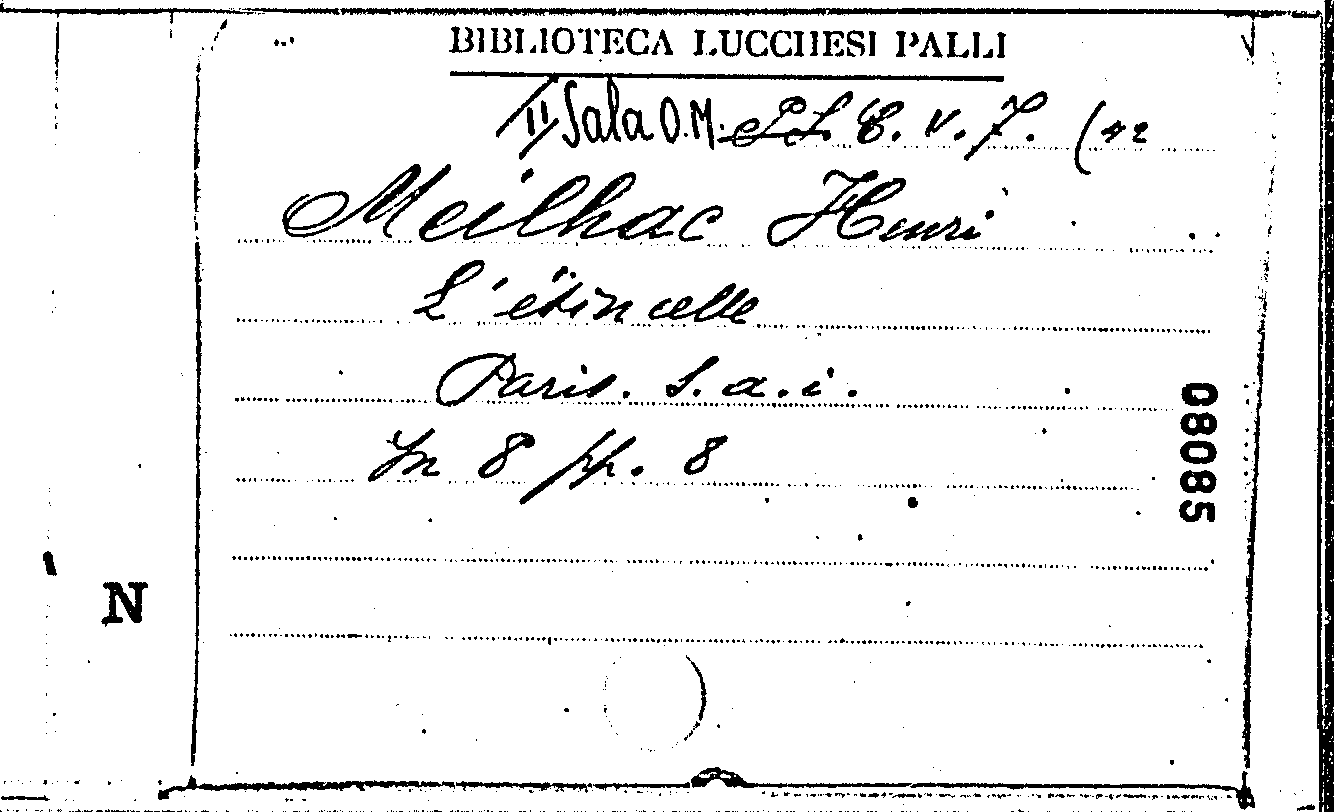 BIBLIOTECA LUCCHESI PALLI
II Sala O.M. C. V. 7. (42
Meilhac Henri
L'étincelle
Paris. S. a. i.
In 8 pp. 8
08085
N